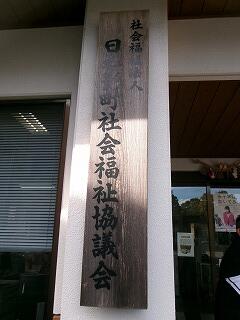 社会福祉法人
日野町社会福祉協議会